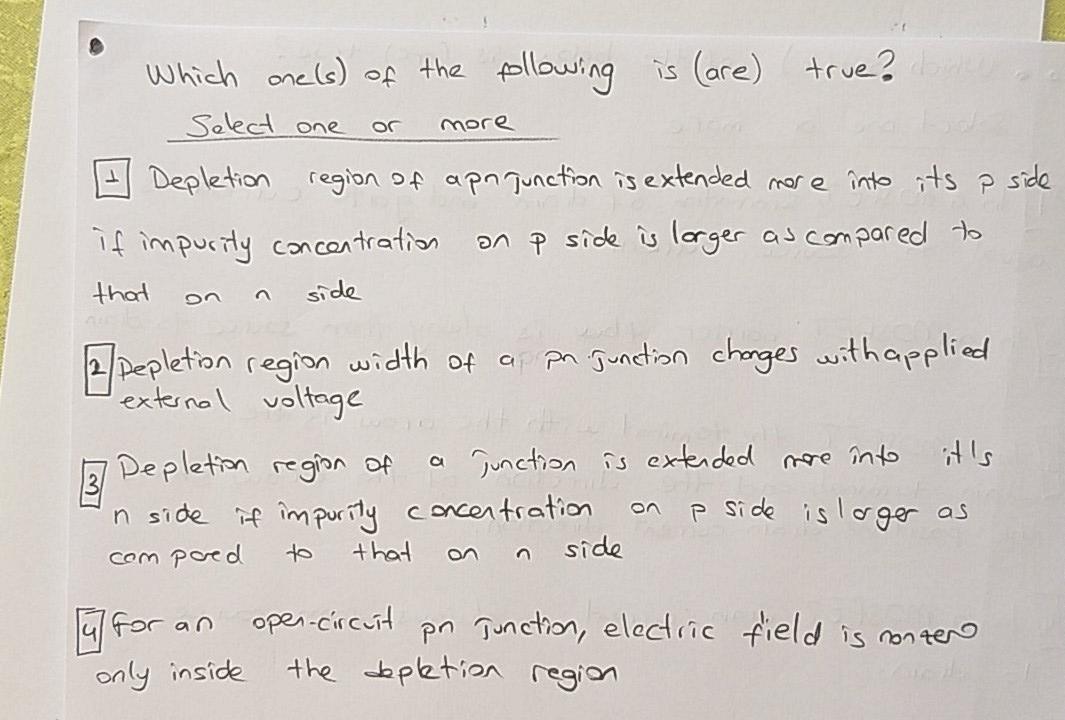 Which one(s) of the following is (are) true?
Select one or more
1 Depletion region of a pn junction is extended more into its p side
if impurity concentration on p side is larger as compared to
that on n side
2 Depletion region width of a pn junction changes with applied
external voltage
3 Depletion region of a junction is extended more into it's
n side if impurity concentration on p side is larger as
compared to that on n side
4 for an open-circuit pn junction, electric field is nonzero
only inside the depletion region